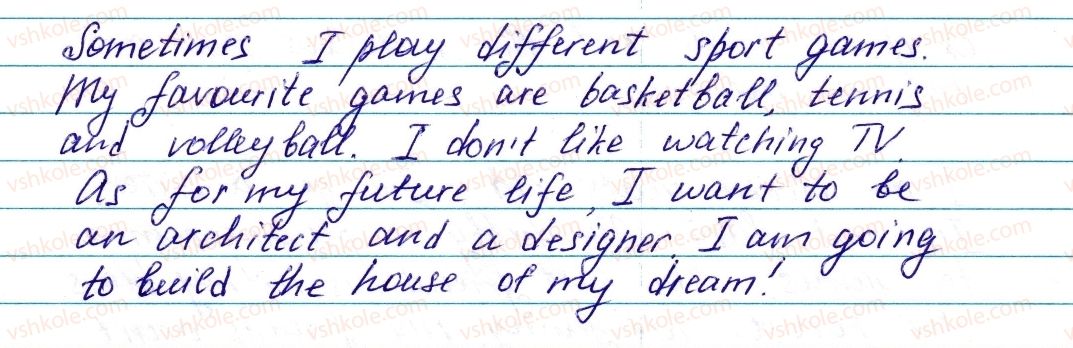 Sometimes I play different sport games.
My favourite games are basketball, tennis
and volleyball. I don't like watching TV.
As for my future life, I want to be
an architect and a designer. I am going
to build the house of my dream!